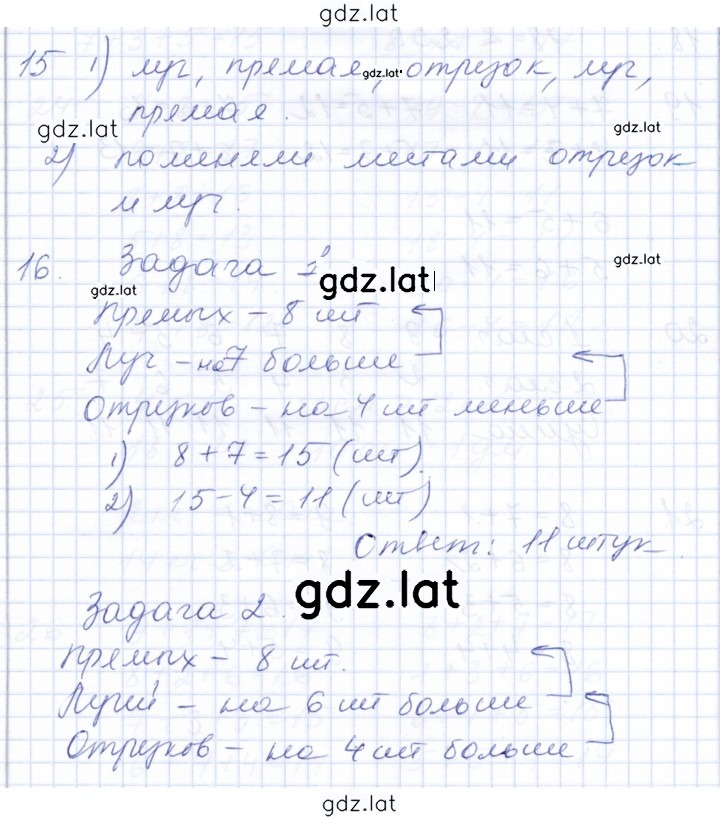 gdz.lat
15 1) луч, прямая, gdz.lat отрезок, луч,
прямая.
gdz.lat gdz.lat
2) поменяли местами отрезок
и луч.
16. Задача 1
gdz.lat gdz.lat gdz.lat
Прямых - 8 шт
Луч - на 7 больше
Отрезков - на 4 шт меньше
1) 8+7=15 (шт).
2) 15-4=11 (шт)
Ответ: 11 штук.
gdz.lat
Задача 2.
Прямых - 8 шт.
Лучей - на 6 шт больше
Отрезков - на 4 шт больше
gdz.lat